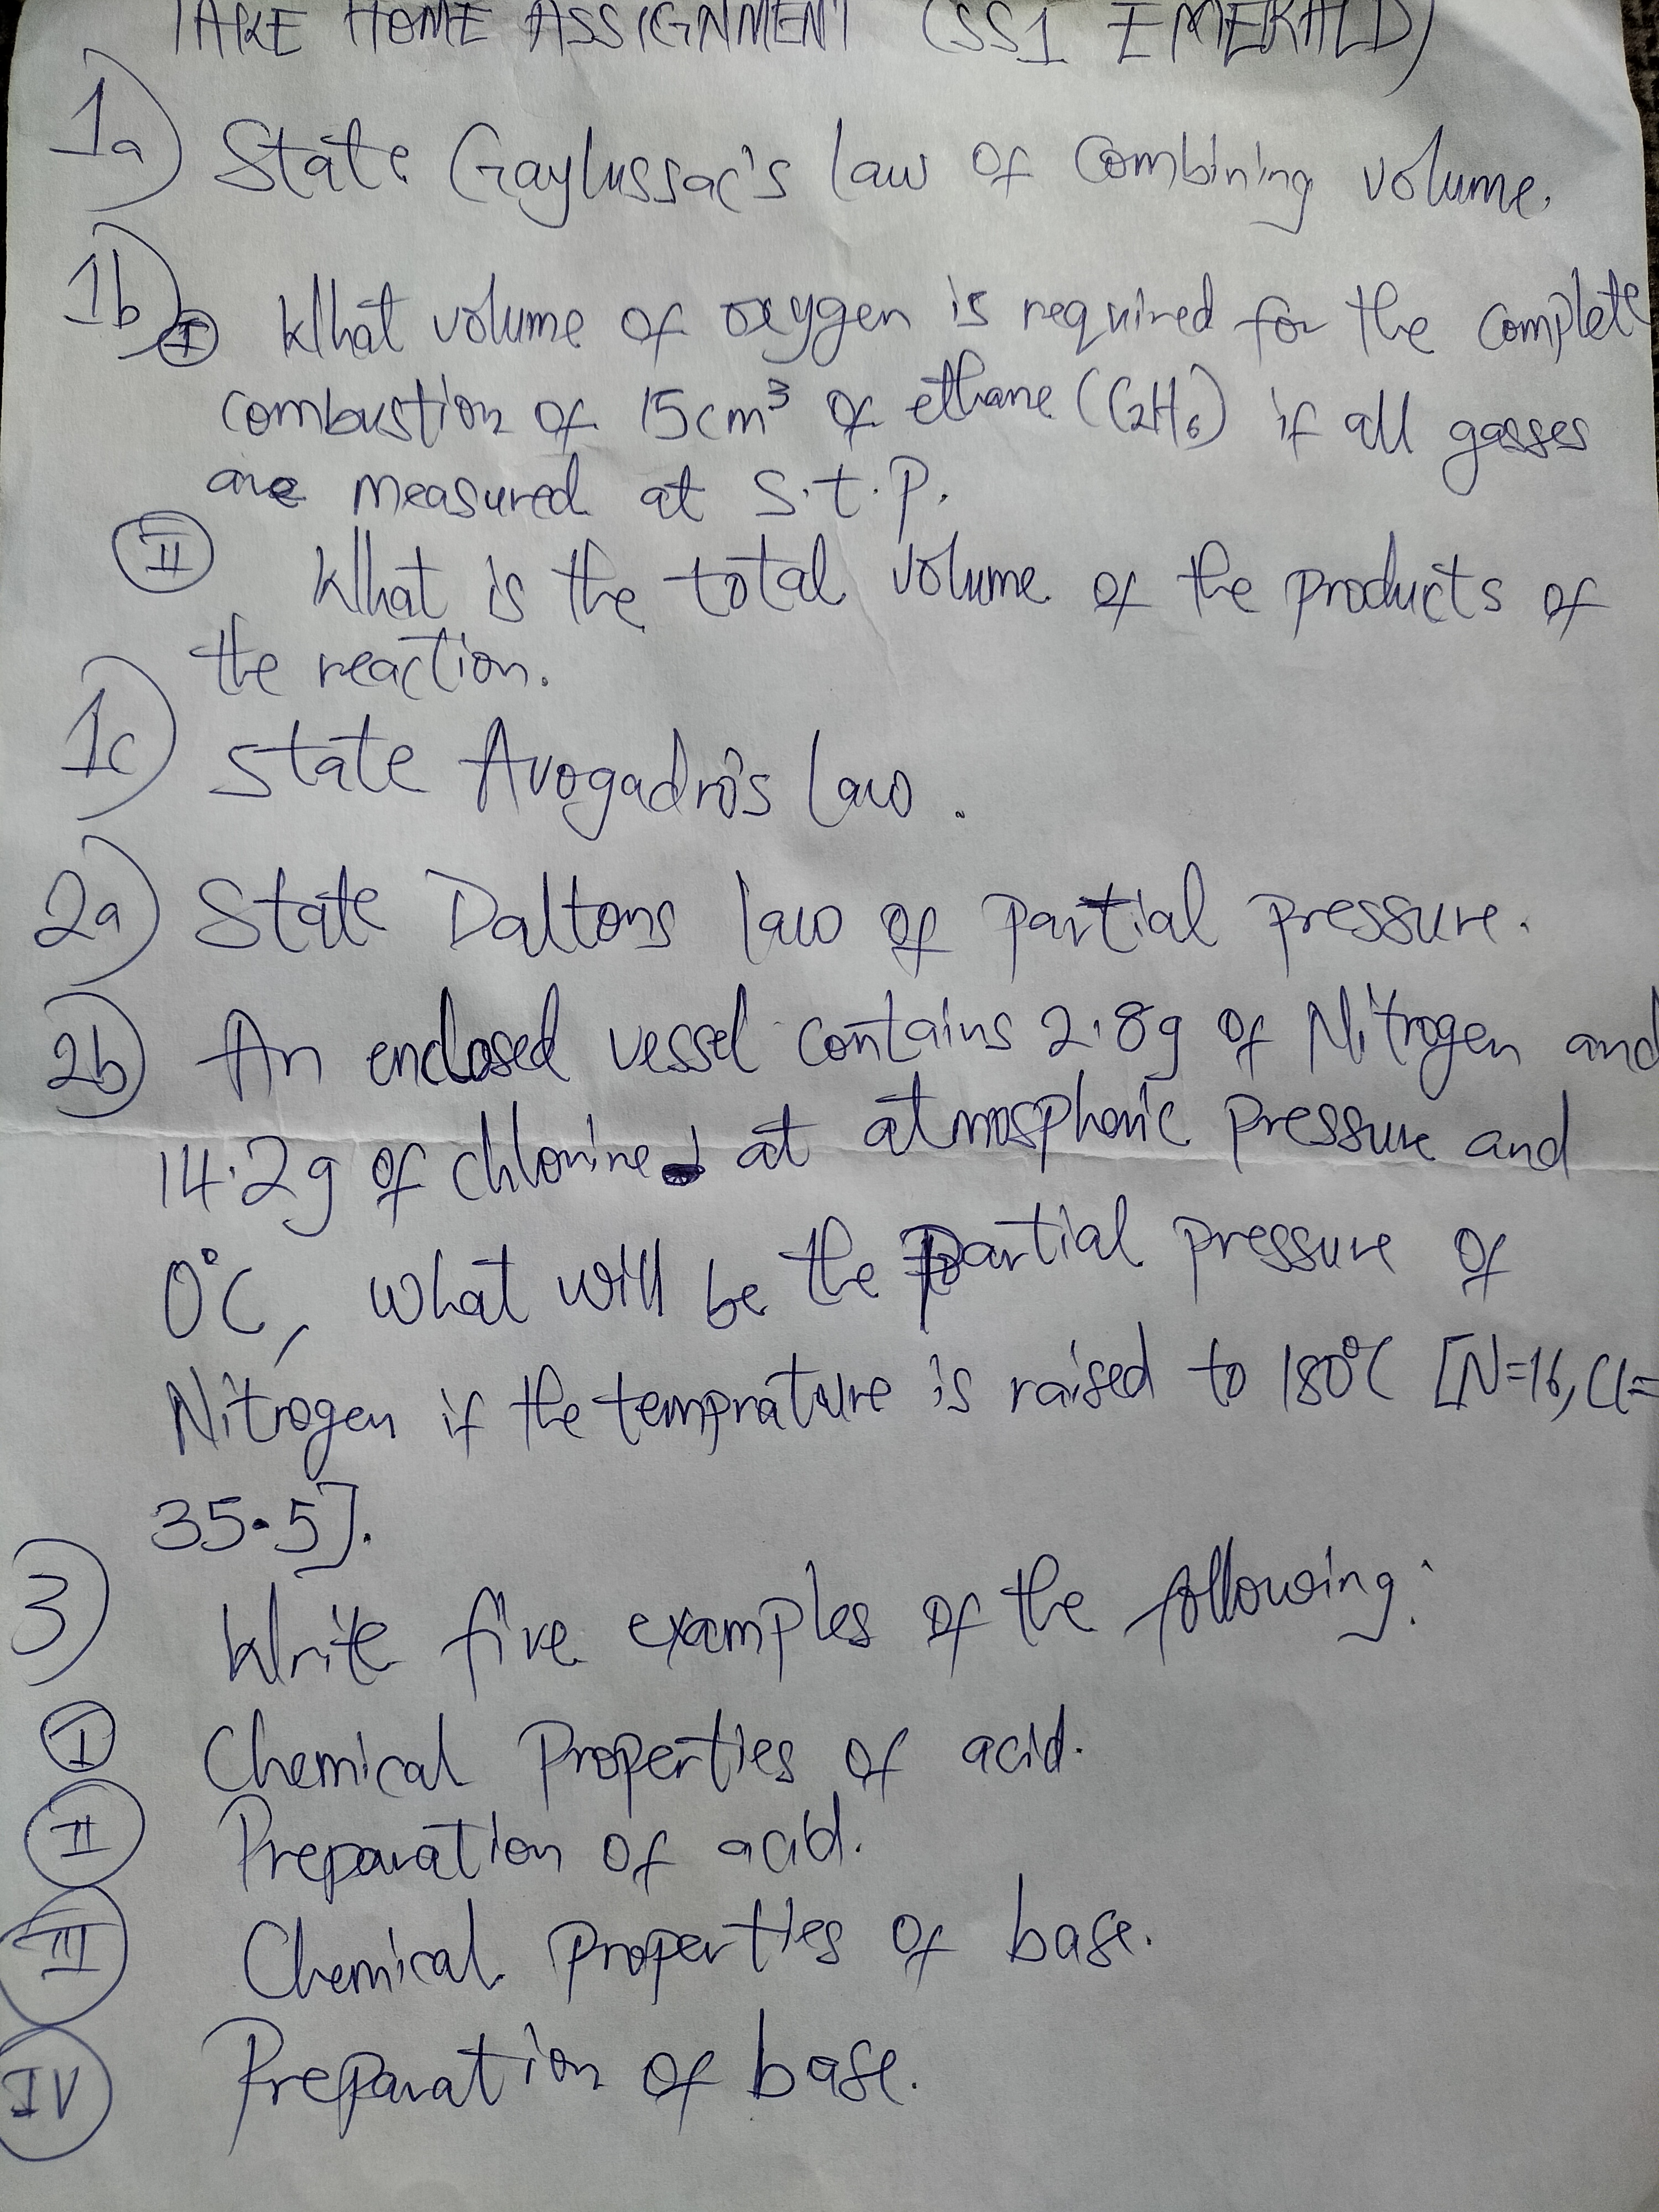 TAKE HOME ASSIGNMENT (SS1 EMERALD)
1a) State Gaylussac's law of combining volume.
1b) I What volume of oxygen is required for the complete
combustion of 15cm³ of ethane (C₂H₆) if all gasses
are measured at s.t.p.
II What is the total volume of the products of
the reaction.
1c) State Avogadro's law.
2a) State Daltons law of partial pressure.
2b) An enclosed vessel contains 2.8g of Nitrogen and
14.2g of chlorine at atmospheric pressure and
0°C, what will be the partial pressure of
Nitrogen if the temprature is raised to 180°C [N=16, Cl=
35.5].
3) Write five examples of the following:
I Chemical properties of acid.
II Preparation of acid.
III Chemical properties of base.
IV Preparation of base.